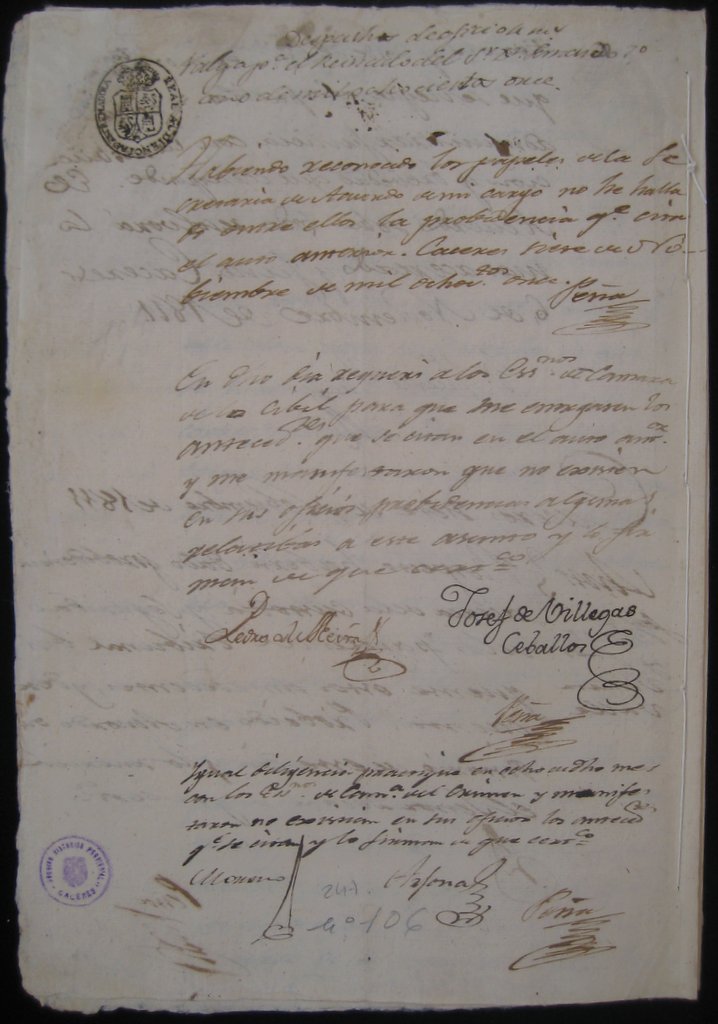 Despachos de oficio
Valga pª. el Reinado del Sr. Dn. Fernando 7º
y año de mil ochocientos once.
Habiendo reconocido los papeles de la Se
cretaria de Acuerdo de mi cargo no he halla
do entre ellos la probidencia qe. cita
el auto anterior. Caceres siete de No-
biembre de mil ochotos. once.
Peña
En dho dia requeri a los Essnos. de Camara
de lo Cibil para que me entregasen los
antecedtes. que se citan en el auto antor.
y me manifestaron que no existen
en sus oficios probidencias algunas
relatibas a este asunto y lo fir
man de que certco
Pedro de Neira
Josef de Villegas
Ceballos
Peña
Igual diligencia practique en ocho de dho mes
con los Esnos. de Camª. del Crimen y manifes
taron no existian en sus oficios los anteceds.
qe. se citan y lo firman de que certco
Moreno
Arjona
Peña
241
nº 106
REAL AUDIENCIA DE EXTREMADURA
ARCHIVO HISTORICO PROVINCIAL
CACERES